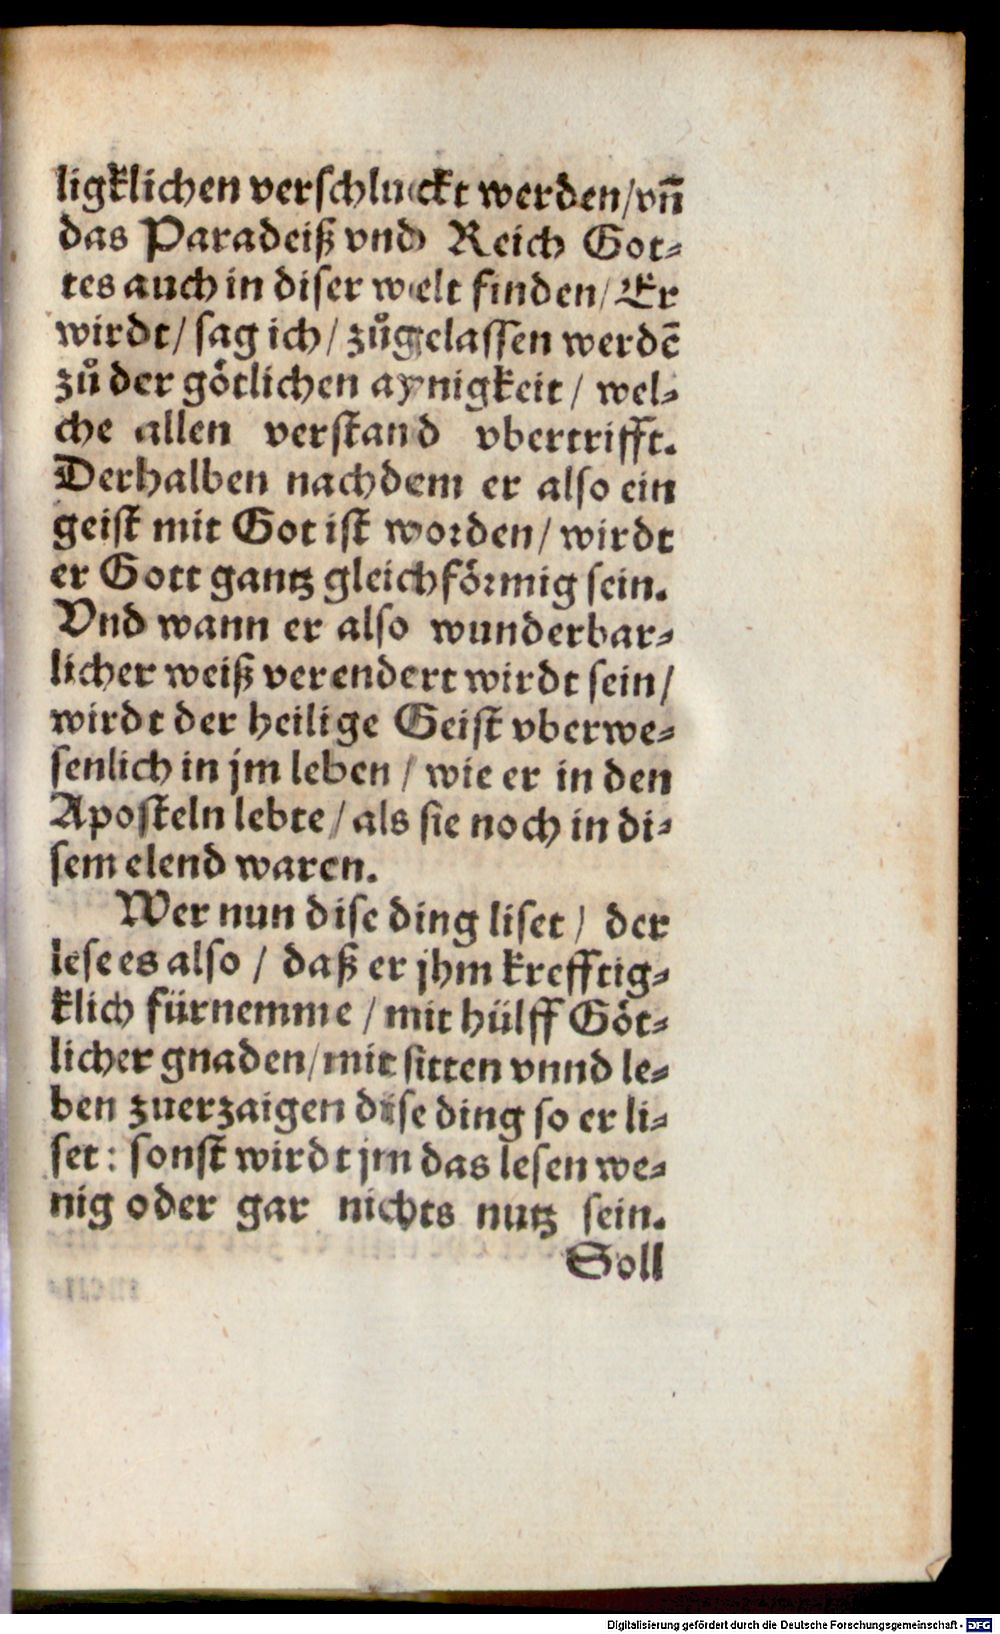 ligklichen verschluckt werden/vñ
das Paradeiß vnd Reich Got⸗
tes auch in diser welt finden/ Er
wirdt/ sag ich/ zůgelassen werdē
zů der götlichen aynigkeit/ wel⸗
che allen verstand vbertrifft.
Derhalben nachdem er also ein
geist mit Got ist worden/ wirdt
er Gott gantz gleichförmig sein.
Vnd wann er also wunderbar⸗
licher weiß verendert wirdt sein/
wirdt der heilige Geist vberwe⸗
senlich in jm leben / wie er in den
Aposteln lebte/ als sie noch in di⸗
sem elend waren.
Wer nun dise ding liset/ der
lese es also / daß er jhm krefftig⸗
klich fürnemme / mit hülff Göt⸗
licher gnaden/mit sitten vnnd le⸗
ben zuerzaigen dise ding so er li⸗
set: sonst wirdt jm das lesen we⸗
nig oder gar nichts nutz sein.
Soll
Digitalisierung gefördert durch die Deutsche Forschungsgemeinschaft - DFG